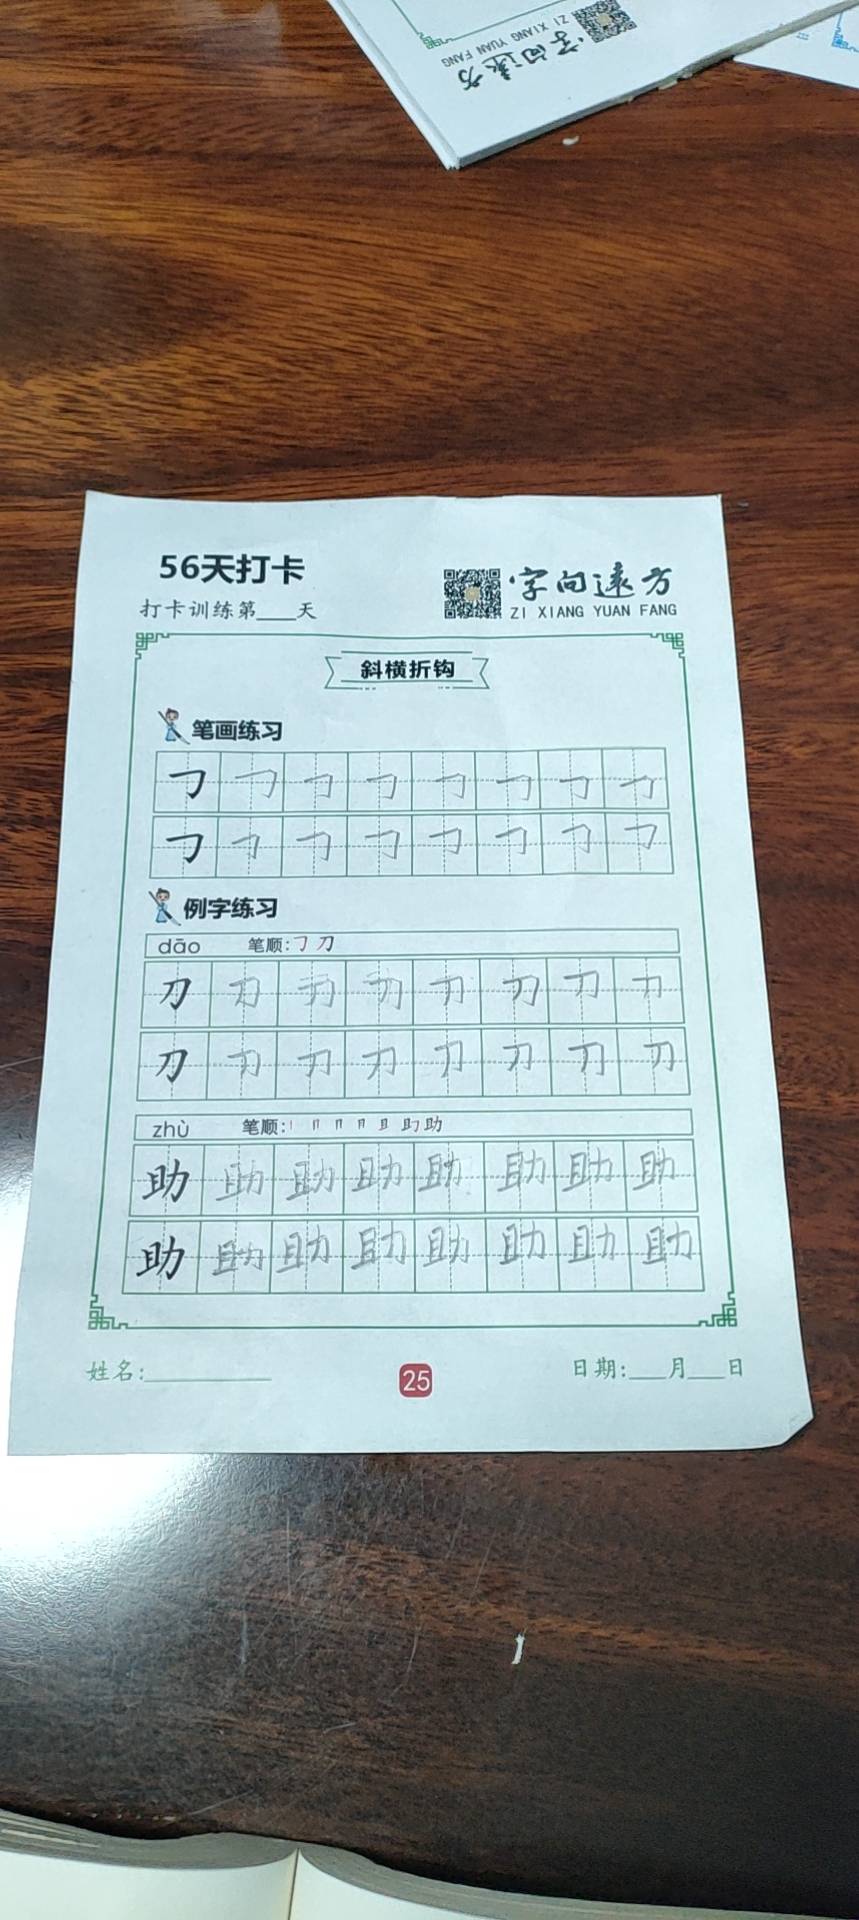 字向远方
ZI XIANG YUAN FANG
56天打卡
打卡训练第___天
字向远方
ZI XIANG YUAN FANG
斜横折钩
笔画练习
㇆ ㇆ ㇆ ㇆ ㇆ ㇆ ㇆ ㇆
㇆ ㇆ ㇆ ㇆ ㇆ ㇆ ㇆ ㇆
例字练习
dāo 笔顺:㇆ 刀
刀 刀 刀 刀 刀 刀 刀 刀
刀 刀 刀 刀 刀 刀 刀 刀
zhù 笔顺:丨 冂 月 且 助
助 助 助 助 助 助 助 助
助 助 助 助 助 助 助 助
姓名:___________
25
日期:___月___日